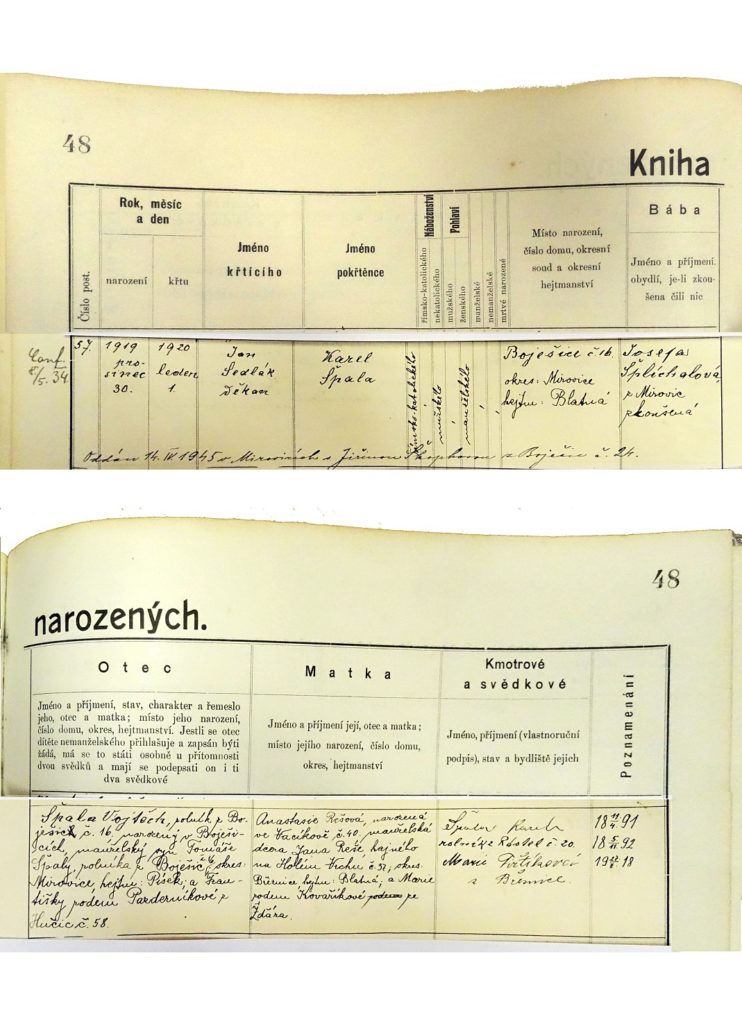 48
Kniha
Číslo post.
Rok, měsíc
a den
narození
křtu
Jméno
křtícího
Jméno
pokřtěnce
Náboženství
římsko-katolického
nekatolického
Pohlaví
mužského
ženského
manželské
nemanželské
mrtvě narozené
Místo narození,
číslo domu, okresní
soud a okresní
hejtmanství
Bába
Jméno a příjmení.
obydlí, je-li zkou-
šena čili nic
57.
1919
pro-
sinec
30.
1920
leden
1
Jan
Sedlák
děkan
Karel
Špala
římsko-katolického
mužského
manželského
Boješice č 16.
okres: Mirovice
hejtm: Blatná
Josefa
Šplíchalová,
z Mirovic
zkoušená
Oddán 14. IV. 1945 v Mirovicích s Jiřinou z Boješic č. 24.
48
narozených.
Otec
Jméno a příjmení, stav, charakter a řemeslo
jeho, otec a matka; místo jeho narození,
číslo domu, okres, hejtmanství. Jestli se otec
dítěte nemanželského přihlašuje a zapsán býti
žádá, má se to státi osobně u přítomnosti
dvou svědků a mají se podepsati on i ti
dva svědkové
Matka
Jméno a příjmení její, otec a matka;
místo jejího narození, číslo domu,
okres, hejtmanství
Kmotrové
a svědkové
Jméno, příjmení (vlastnoruční
podpis), stav a bydliště jejich
Poznamenání
Špala Vojtěch, rolník z Bo-
ješic č. 16. narozený v Boješi-
cích, manželský syn Tomáše
Špaly, rolníka z Boješic, okres:
Mirovice, hejtm: Písek, a Fran-
tišky rodem Parderníkové z
Hučic č. 58.
Anastasie Rešová, narozená
ve Vacíkově č. 40, manželská
dcera Jana Reše, hajného
na Holém Vrchu č. 37, okres
Březnice hejtm: Blatná, a Marie
rodem Kovaříkové rodem ze
Žďára.
Špala Karel
rolník z Rástel č. 20
Marie
z Březnice.
18 91
18 92
19 18